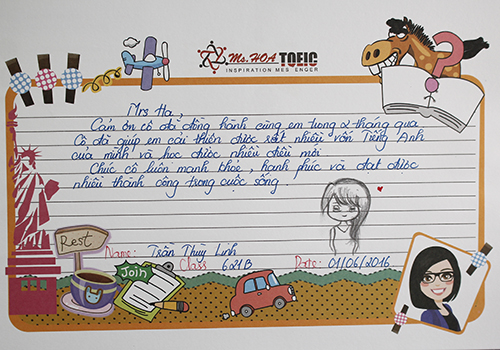 Ms. HOA TOEIC
INSPIRATION MESSENGER
Mrs Hạ,
Cảm ơn cô đã đồng hành cùng em trong 2 tháng qua
Cô đã giúp em cải thiện được rất nhiều vốn Tiếng Anh
của mình và học được nhiều điều mới
Chúc cô luôn mạnh khỏe, hạnh phúc và đạt được
nhiều thành công trong cuộc sống.
Rest
Name: Trần Thùy Linh
Join
Class 621B
Date: 01/06/2016